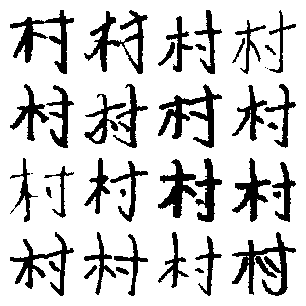 村村村村
村村村村
村村村村
村村村村